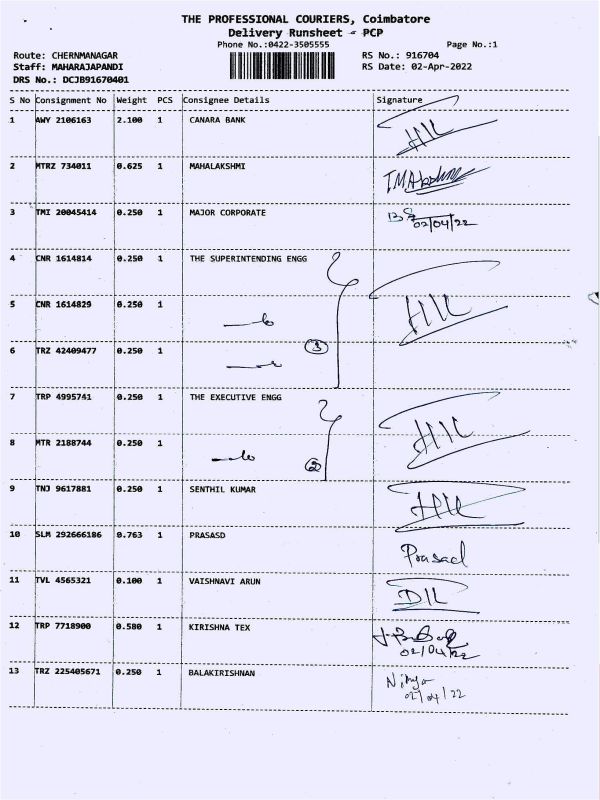 THE PROFESSIONAL COURIERS, Coimbatore
Delivery Runsheet - PCP
Phone No.:0422-3505555 Page No.:1
Route: CHERNMANAGAR RS No.: 916704
Staff: MAHARAJAPANDI RS Date: 02-Apr-2022
DRS No.: DCJB91670401
S No Consignment No Weight PCS Consignee Details Signature
1 AWY 2106163 2.100 1 CANARA BANK
2 MTRZ 734011 0.625 1 MAHALAKSHMI
3 TMI 20045414 0.250 1 MAJOR CORPORATE
02/04/22
4 CNR 1614814 0.250 1 THE SUPERINTENDING ENGG
5 CNR 1614829 0.250 1
6 TRZ 42409477 0.250 1 3
7 TRP 4995741 0.250 1 THE EXECUTIVE ENGG
8 MTR 2188744 0.250 1 2
9 TNJ 9617881 0.250 1 SENTHIL KUMAR
10 SLM 292666186 0.763 1 PRASASD Prasad
11 TVL 4565321 0.100 1 VAISHNAVI ARUN
12 TRP 7718900 0.580 1 KIRISHNA TEX
02/04/22
13 TRZ 225405671 0.250 1 BALAKIRISHNAN Nithya
02/04/22